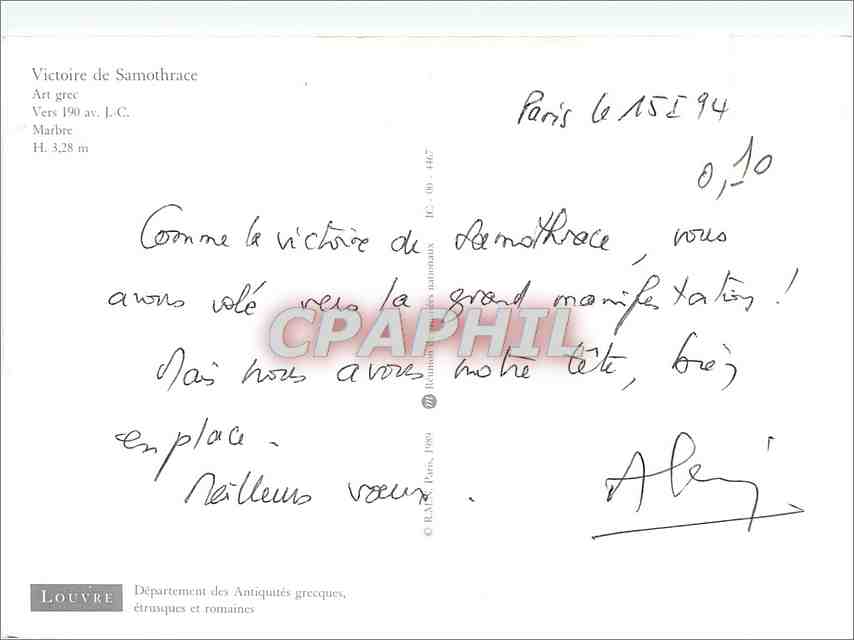 Victoire de Samothrace
Art grec
Vers 190 av. J.-C.
Marbre
H. 3,28 m
Paris le 15 I 94
0,10
Comme la victoire de Samothrace, vous
avons volé vers la grand manifestation !
Mais nous avons notre tête, bien
en place.
Meilleurs vœux.
Alain
CPAPHIL
© R.M.N. Paris, 1989
Réunion des musées nationaux
IC - 00 - 4467
LOUVRE
Département des Antiquités grecques,
étrusques et romaines